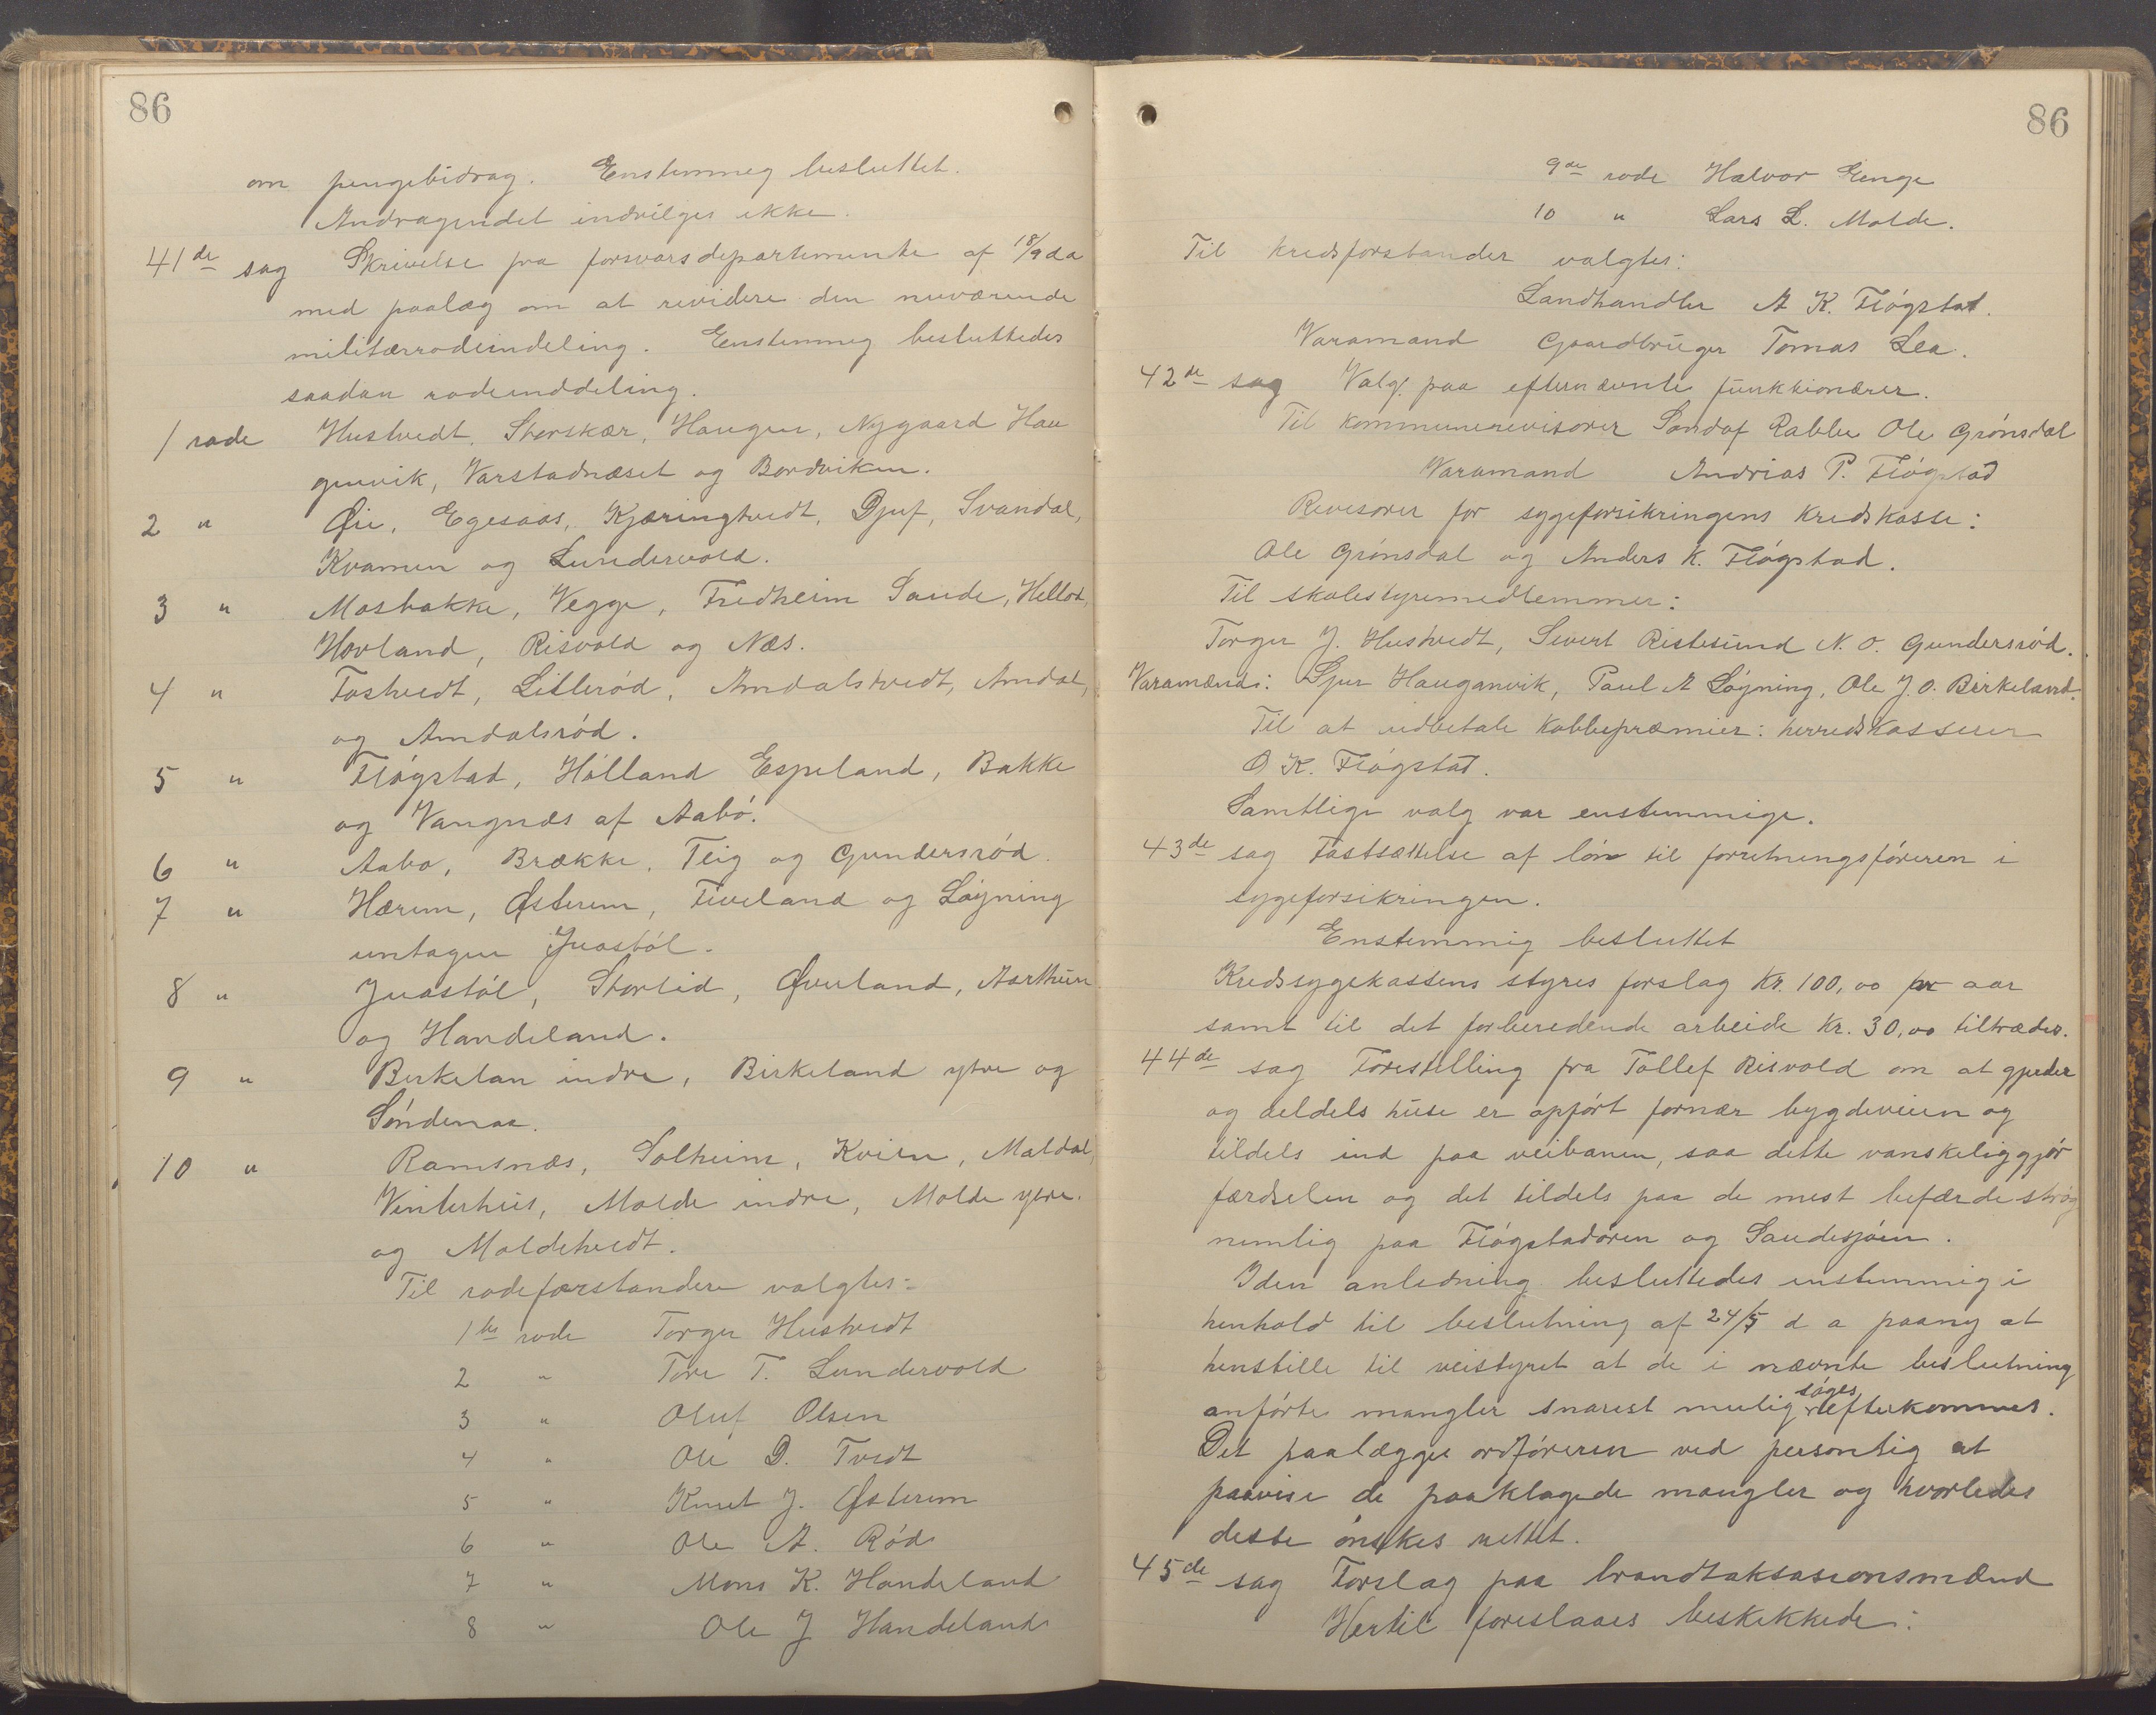 86
om pengebidrag. Enstemmeg besluttet.
Andragendet indvilges ikke.
41de sag Skrivelse fra forsvarsdepartemente af 18/9 d a
med paalæg om at revidere den nuværende
militærrodeindeling. Enstemmeg besluttedes
saadan rodeinddeling.
1 rode Hustvedt, Storskær, Haugen, Nygaard Hau
genvik, Varstadnæset og Bordviken.
2 " Øie, Egesaas, Kjæringtvedt, Djuf, Svandal,
Kvamen og Lundervold.
3 " Mosbakke, Vegge, Fredheim Sande, Hellot,
Hovland, Risvold og Næs.
4 " Tostvedt, Litlerød, Amdalstvedt, Amdal,
og Amdalsrød.
5 " Fløgstad, Hølland Espeland, Bakke
og Vangnæs af Aabø.
6 " Aabo, Brække, Teig og Gundersrød.
7 " Hærem, Østerem, Fiveland og Løyning
untagen Juastøl.
8 " Juastøl, Storlid, Øverland, Aarthun
og Handeland.
9 " Berkelan indre, Birkeland ytre og
Søndenaa.
10 " Ramsnæs, Solheim, Kvien, Maldal,
Vinterhus, Molde indre, Molde ytre.
og Moldetvedt.
Til rodeforstandere valgtes:
1ste rode Torger Hustvedt
2 " Tore T. Lundervold
3 " Oluf Olsen
4 " Ole D. Tvedt
5 " Knut J. Østerem
6 " Ole A. Rød
7 " Mons K. Handeland
8 " Ole J Handeland
86
9de rode Halvor Eenge
10 " Lars L. Molde.
Til kredsforstander valgtes:
Landhandler A K. Fløgstad.
Varamand Gaardbruger Tomas Lea.
42de sag Valg paa efternævnte funktionærer.
Til kommunerevisorer Sandof Rabbe Ole Grønsdal
Varamand Andrias P. Fløgstad
Revisorer for sygeforsikringens kredskasse:
Ole Grønsdal og Anders K. Fløgstad.
Til skolestyremedlemmer:
Torger J. Hustvedt, Sivert Ristesund N. O. Gundersrød.
Varamænd: Sjur Hauganvik, Paul A Løyning, Ole J. O. Birkeland.
Til at udbetale kobbepræmier: herredskasserer
O K. Fløgstad.
Samtlige valg var enstemmige.
43de sag Fastsættelse af løn til forretningsføreren i
sygeforsikringen.
Enstemmig besluttet
Kredssygekassens styres forslag Kr. 100,00 pr aar
samt til det forberedende arbeide Kr. 30,00 tiltrædes.
44de sag Forestilling fra Tollef Risvold om at gjerder
og deldels huse er opført fornær bygdeveien og
tildels ind paa veibanen, saa dette vanskeliggjør
færdselen og det tildels paa de mest befærde strøg
nemlig paa Fløgstadøren og Saudesjøen.
I den anledning besluttedes enstemmig i
henhold til beslutning af 24/5 d a paany at
henstille til veistyret at de i nævnte beslutning
anførte mangler snarest mulig søges efterkommes.
Det paalægges ordføreren ved personlig at
paavise de paaklagede mangler og hvorledes
desse ønskes rettet.
45de sag Forslag paa brandtaksasionsmænd
Hertil foreslaaes beskikkede: